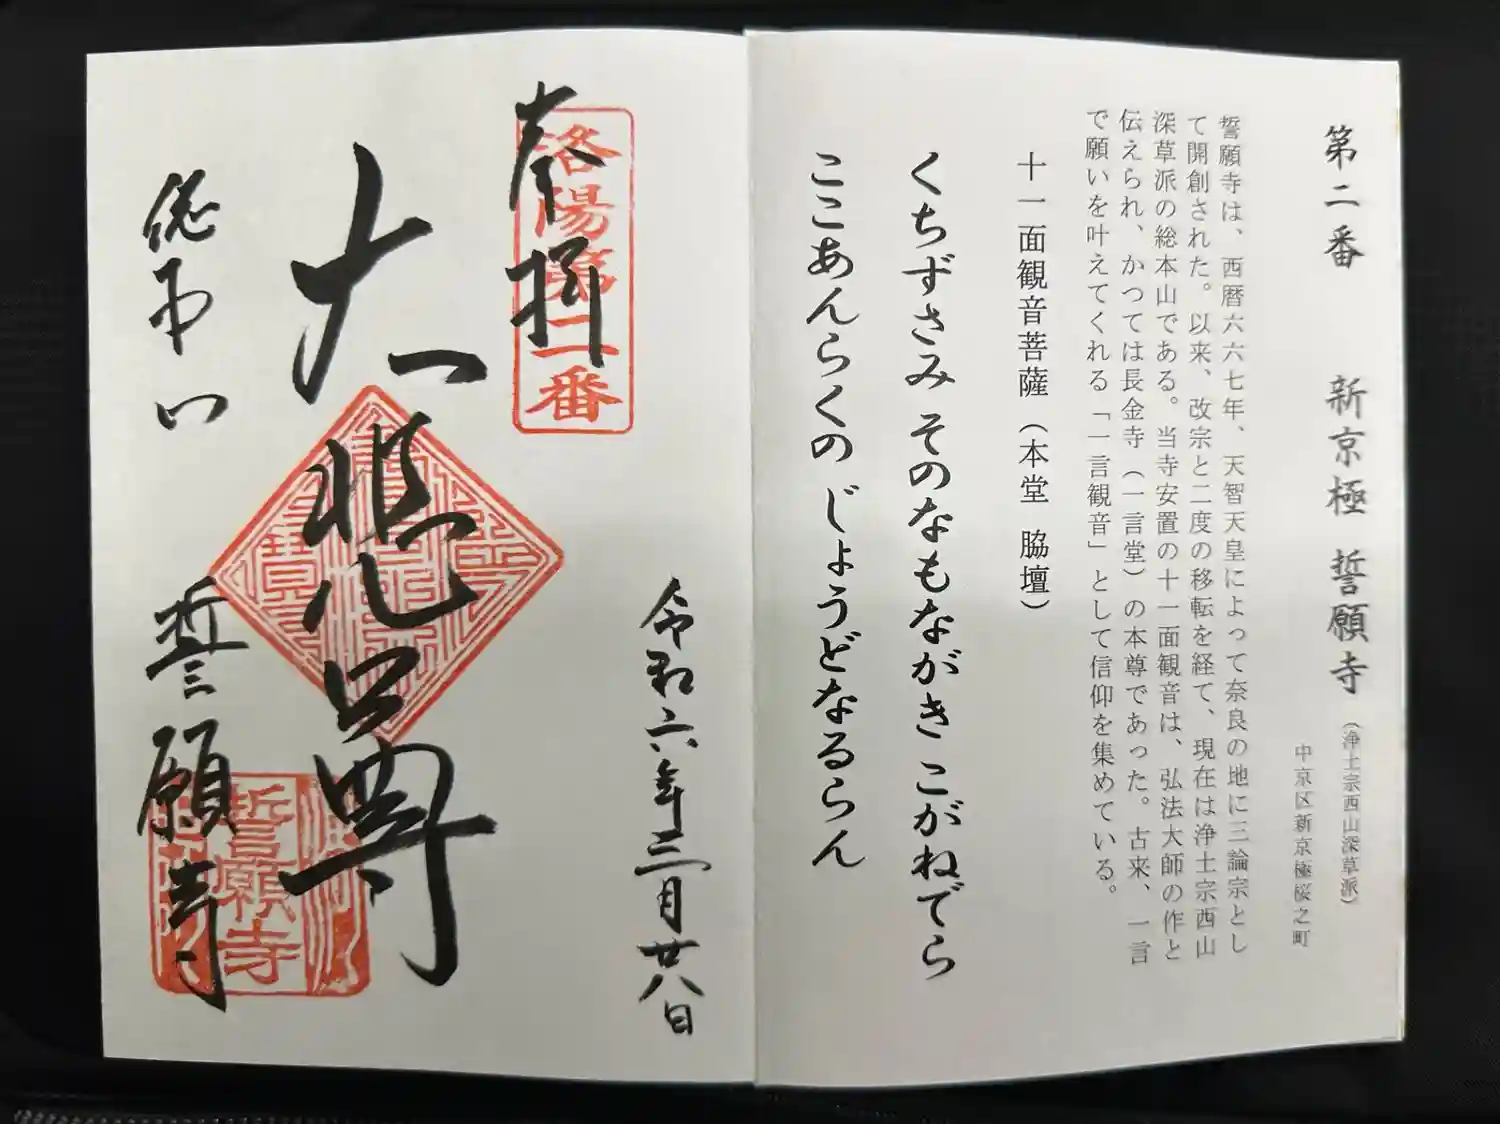 第二番 新京極 誓願寺（浄土宗西山深草派）
中京区新京極桜之町
誓願寺は、西暦六六七年、天智天皇によって奈良の地に三論宗とし
て開創された。以来、改宗と二度の移転を経て、現在は浄土宗西山
深草派の総本山である。当寺安置の十一面観音は、弘法大師の作と
伝えられ、かつては長金寺（一言堂）の本尊であった。古来、一言
で願いを叶えてくれる「一言観音」として信仰を集めている。
十一面観音菩薩（本堂 脇壇）
くちずさみ そのなもながき こがねでら
ここあんらくの じょうどなるらん
令和六年三月廿八日
奉拝
洛陽第二番
大悲尊
総本山 誓願寺
誓願寺